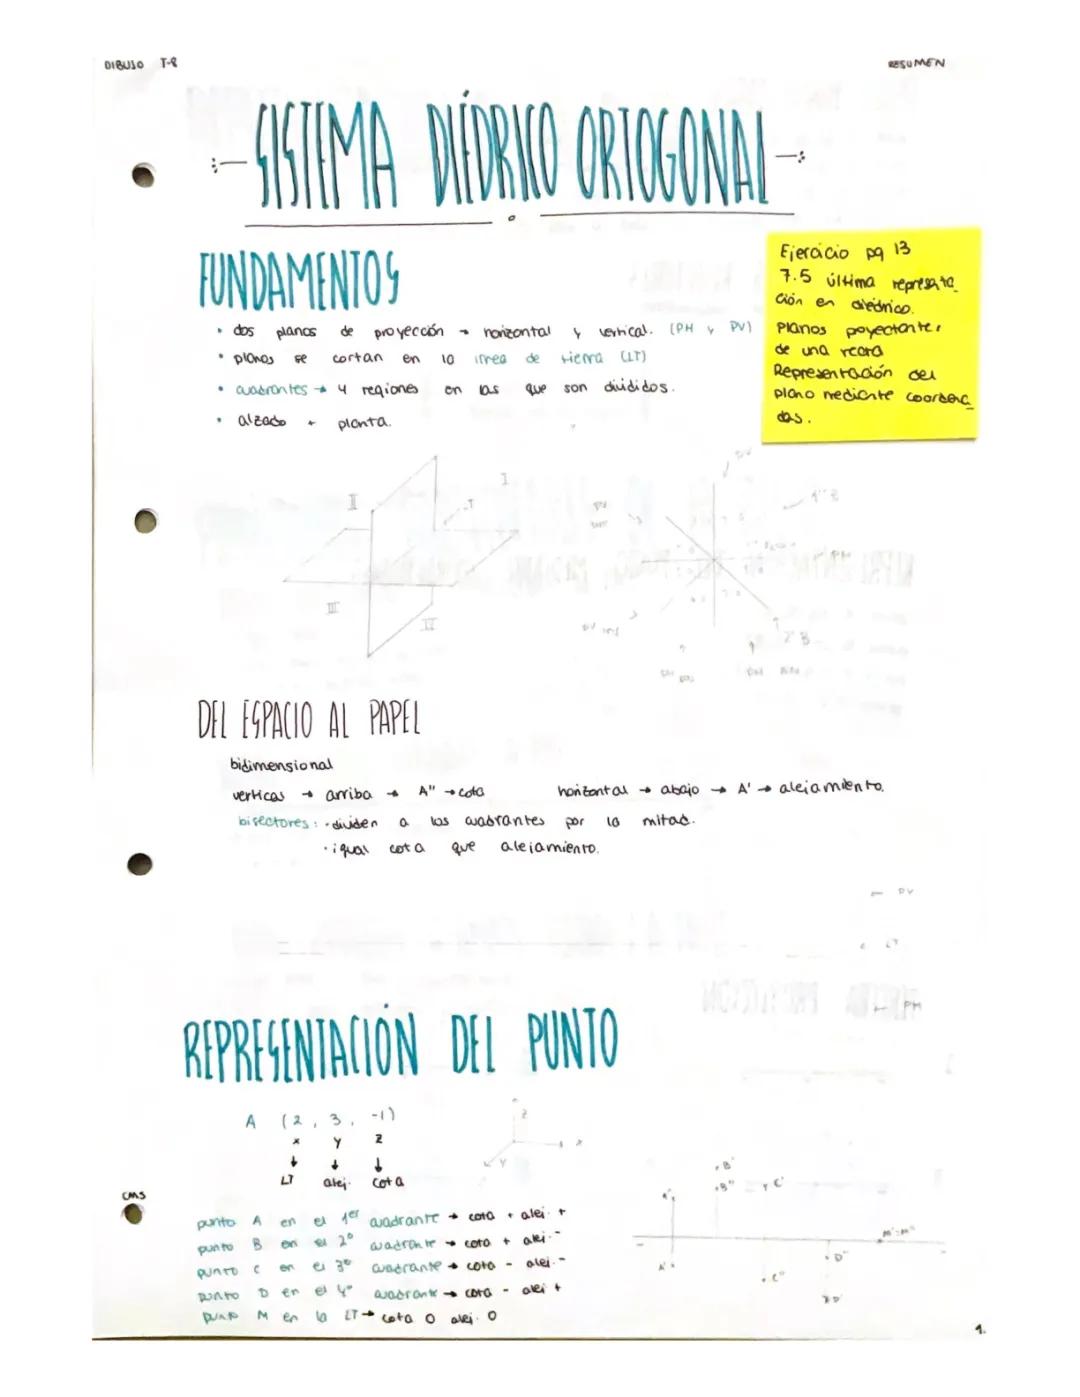 DIBUJO T-8
RESUMEN
SISTEMA DIÉDRICO ORTOGONAL
FUNDAMENTOS
• dos planos de proyección → horizontal y vertical. (PH y PV)
• planos se cortan en la línea de tierra (LT)
• cuadrantes → 4 regiones en las que son divididos.
• alzado + planta.
Ejercicio pg 13
7.5 última representa_
ción en diédrico.
Planos poyectantes
de una recta
Representación del
plano mediante coordena_
das.
I
II
III
IV
DEL ESPACIO AL PAPEL
bidimensional
vertical → arriba → A'' → cota
horizontal → abajo → A' → alejamiento.
bisectores: · dividen a los cuadrantes por la mitad.
· igual cota que alejamiento.
← PV
← LT
← PH
REPRESENTACIÓN DEL PUNTO
A (2, 3, -1)
x y z
↓ ↓ ↓
LT alej. cota
z
x
y
punto A en el 1er cuadrante → cota + alej. +
punto B en el 2º cuadrante → cota + alej. -
punto C en el 3º cuadrante → cota - alej. -
punto D en el 4º cuadrante → cota - alej +
punto M en la LT → cota 0 alej. 0
CMS
B'
B''
C'
M'=M''
D''
C''
1.